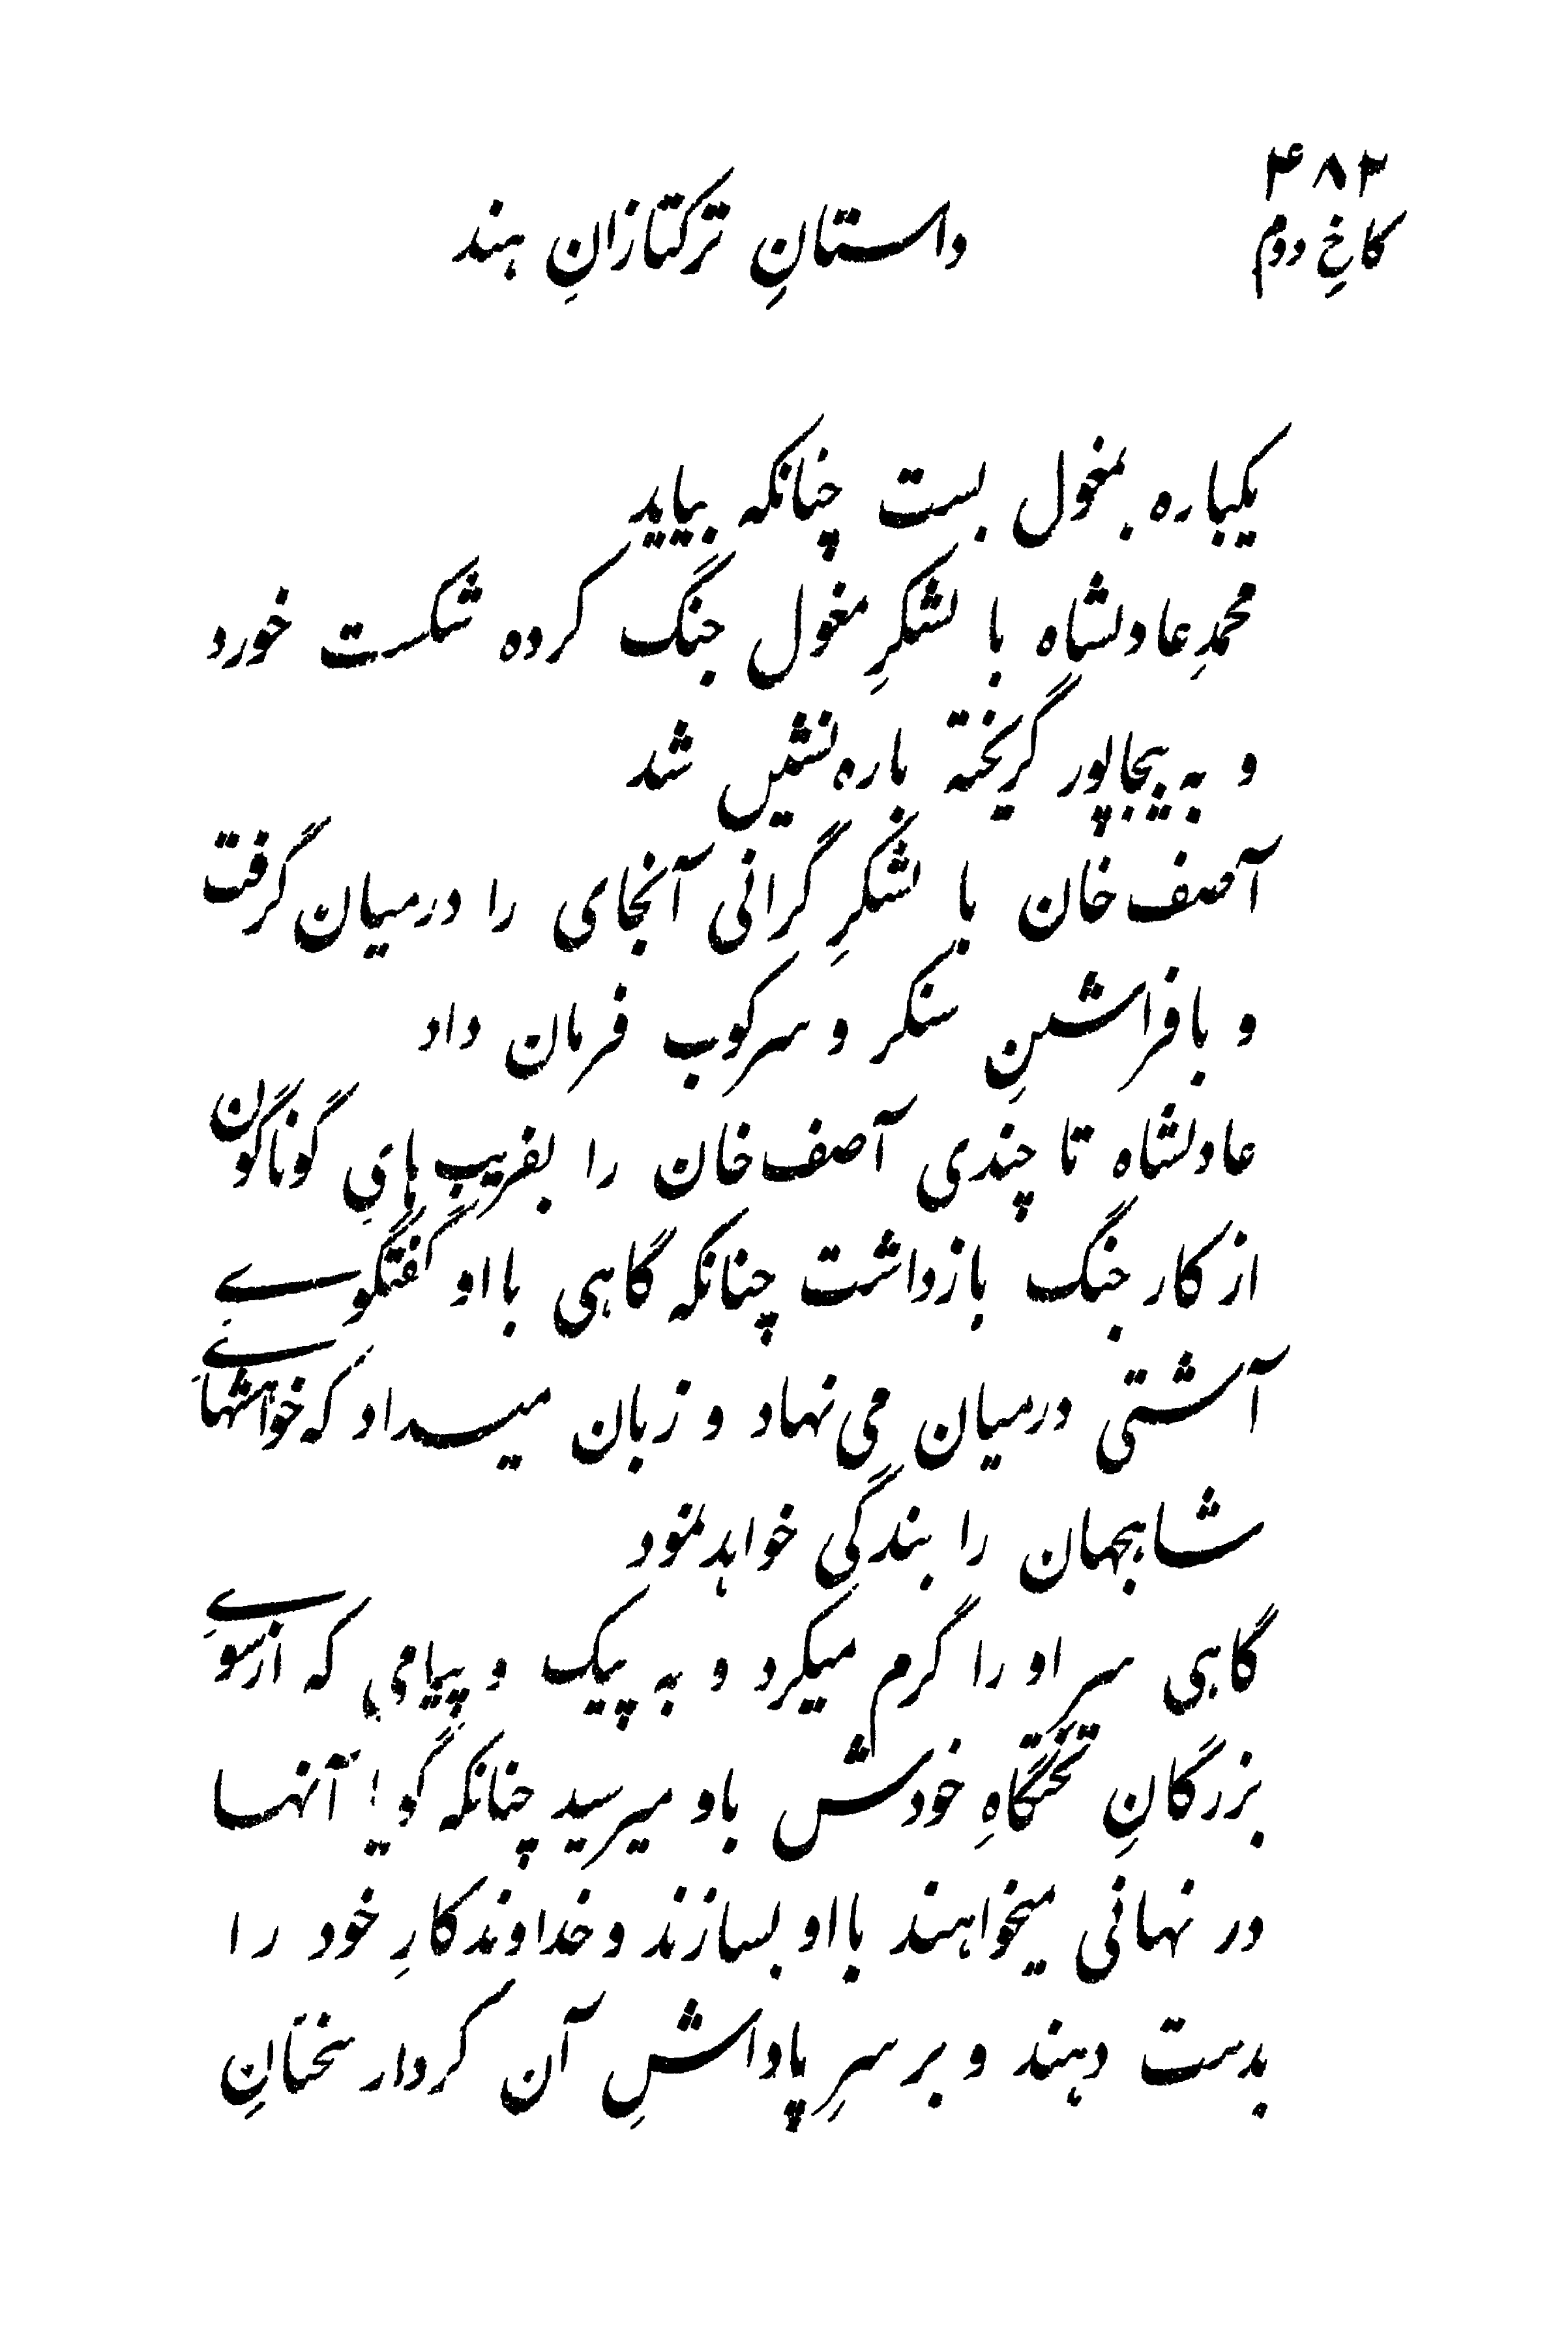 ۴۸۲
کاخِ دوم
داستانِ ترکتازانِ هند
یکباره بمغول بست چنانکه بیاید
محمدِ عادلشاه با لشکرِ مغول جنگ کرده شکست خورد
و به بیجاپور گریخته باره نشین شد
آصف خان با لشکرِ گرانی آنجای را درمیان گرفت
و بافراشتنِ سنکر و سرکوب فرمان داد
عادلشاه تا چندی آصف خان را بفریبِ هایِ گوناگون
از کار جنگ بازداشت چنانکه گاهی با او گفتگوے
آشتی درمیان می نهاد و زبان میداد که خواهشهاےِ
شاهجهان را بندگی خواهد نمود
گاهی سر او را گرم میکرد و به پیک و پیامی که ازسوےِ
بزرگانِ تختگاهِ خودش باو میرسید چنانکه گویا آنها
در نهانی میخواهند با او بسازند و خداوندکارِ خود را
بدست دهند و بر سرِ پاداشِ آن کردار سخنانِ